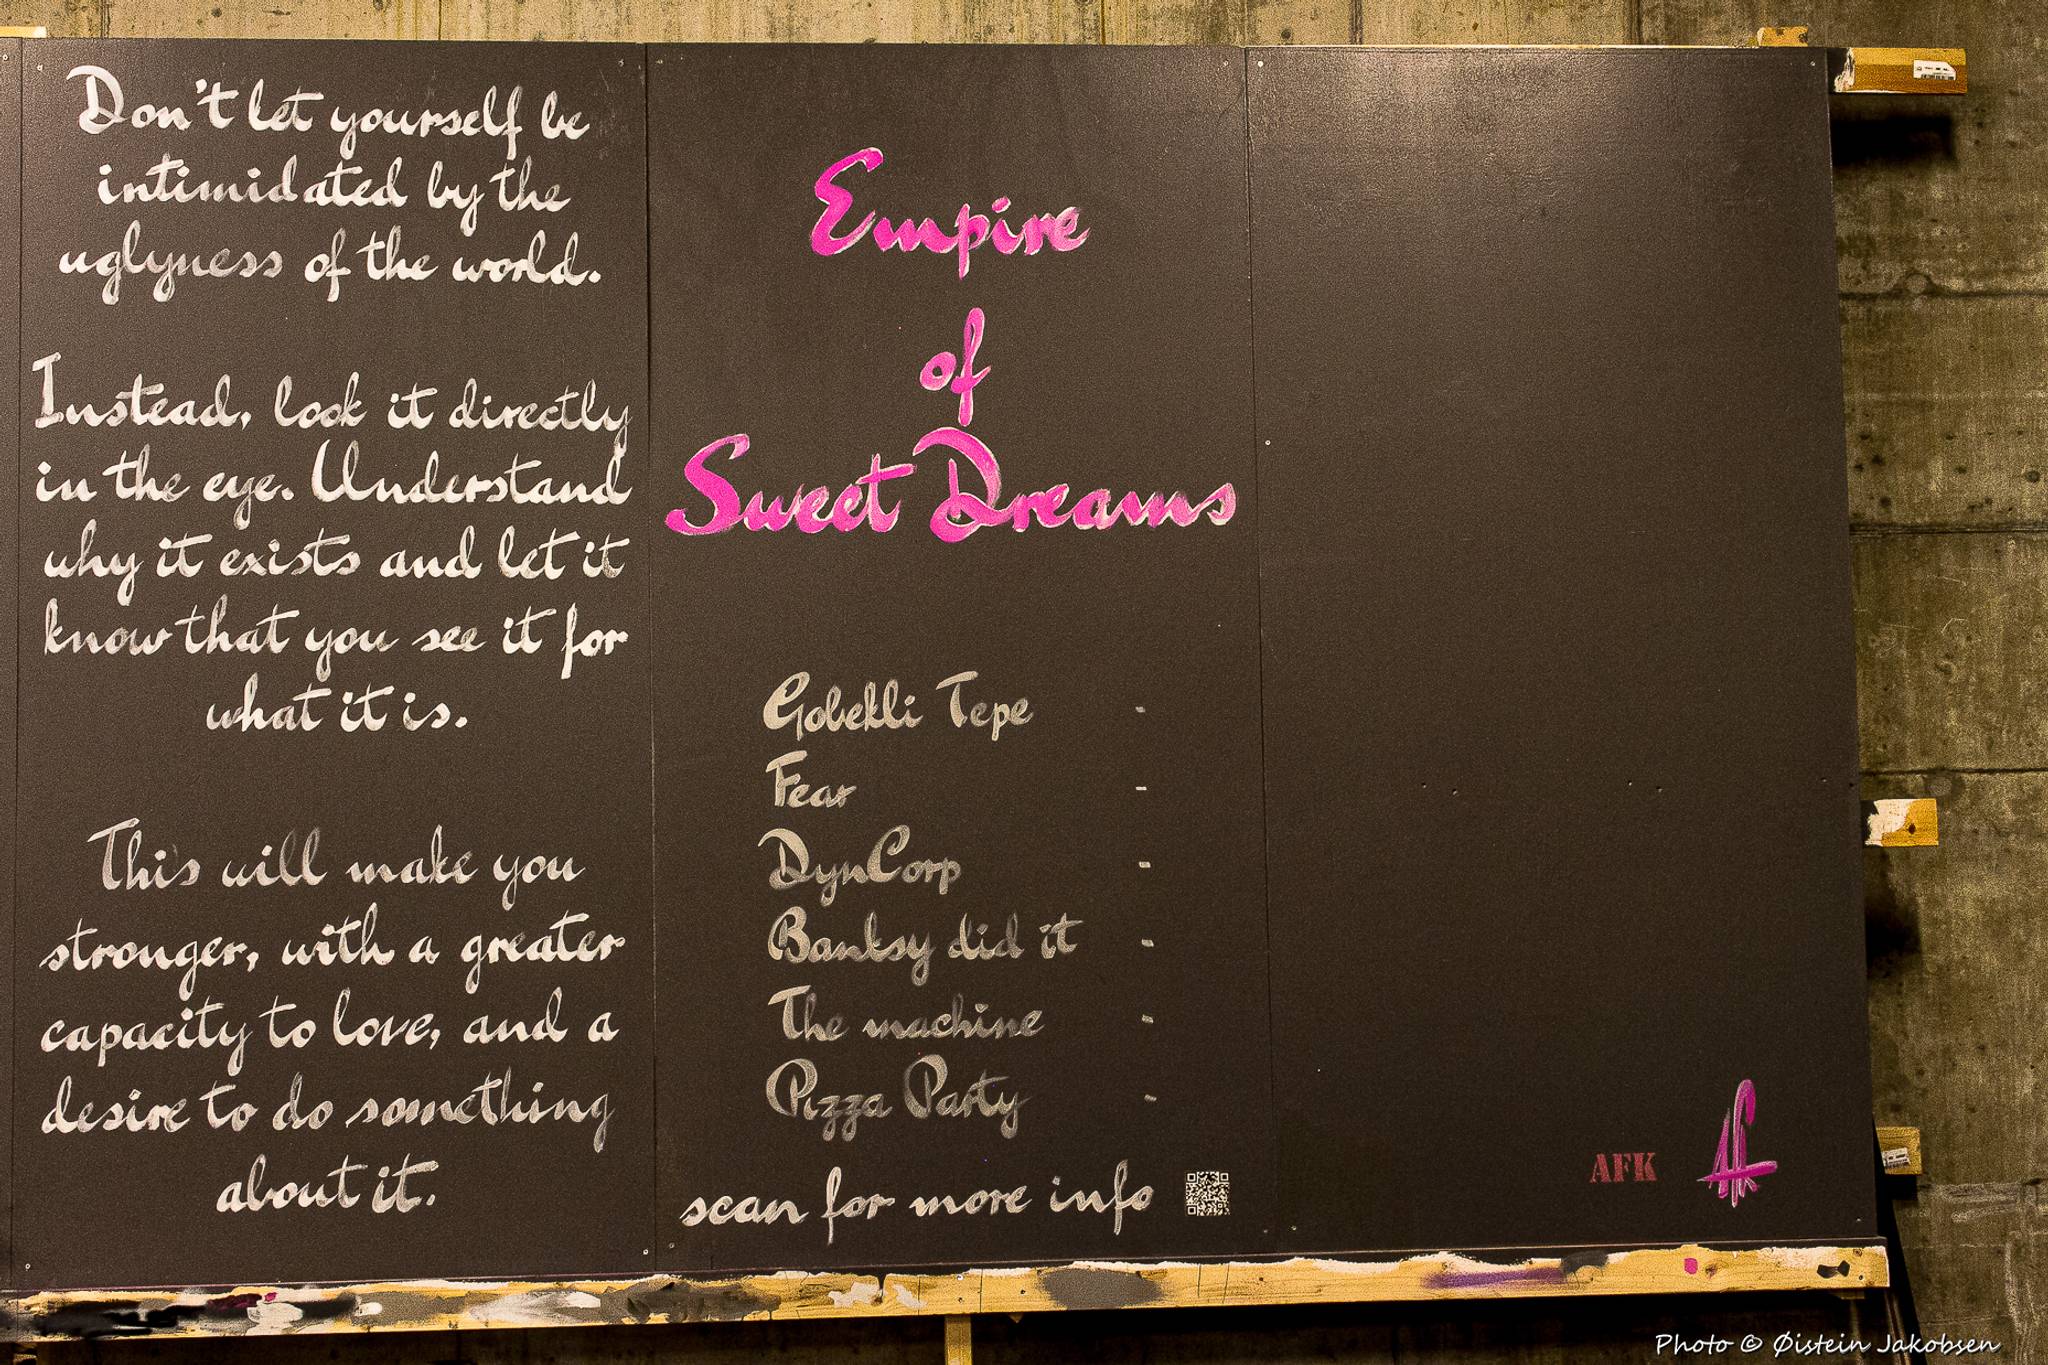 Don't let yourself be
intimidated by the
uglyness of the world.
Instead, look it directly
in the eye. Understand
why it exists and let it
know that you see it for
what it is.
This will make you
stronger, with a greater
capacity to love, and a
desire to do something
about it.
Empire
of
Sweet Dreams
Gobekli Tepe -
Fear -
DynCorp -
Banksy did it -
The machine -
Pizza Party -
scan for more info
AFK
AFK
Photo © Øistein Jakobsen